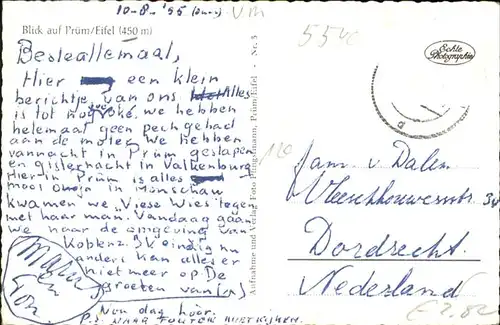 10-8-'55
V.M
5540
Blick auf Prüm/Eifel (450 m)
Echte
Photographie
Besteallemaal,
Hier een klein
berichtje van ons Alles
is tot nog toe oké. we hebben
helemaal geen pech gehad
aan de motor. We hebben
vannacht in Prüm geslapen
en gisternacht in Valkenburg
Hier in Prüm is alles
mooi in Monschau
kwamen we „Viese Wies" tegen
met haar man. Vandaag gaan
we naar de omgeving van
Koblenz. Ik eindig nu
anders kan alles er
niet meer op De
groeten van(a)
en
Ton
Nou dag hoor.
P.S. NAAR FOUTEN NIET KIJKEN.
Aufnahme und Verlag: Foto Plingschmann, Prüm/Eifel - Nr. 5
120
fam v. Dalen
Vleeschhouwersstr 34
Dordrecht
Nederland